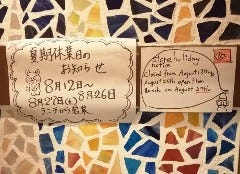 夏期休業日の
お知らせ
8月12日〜
8月26日
8月27日(火)
ランチから営業
Store holiday
notice
Closed from August 12th
August 26th open from
lunch on August 27th